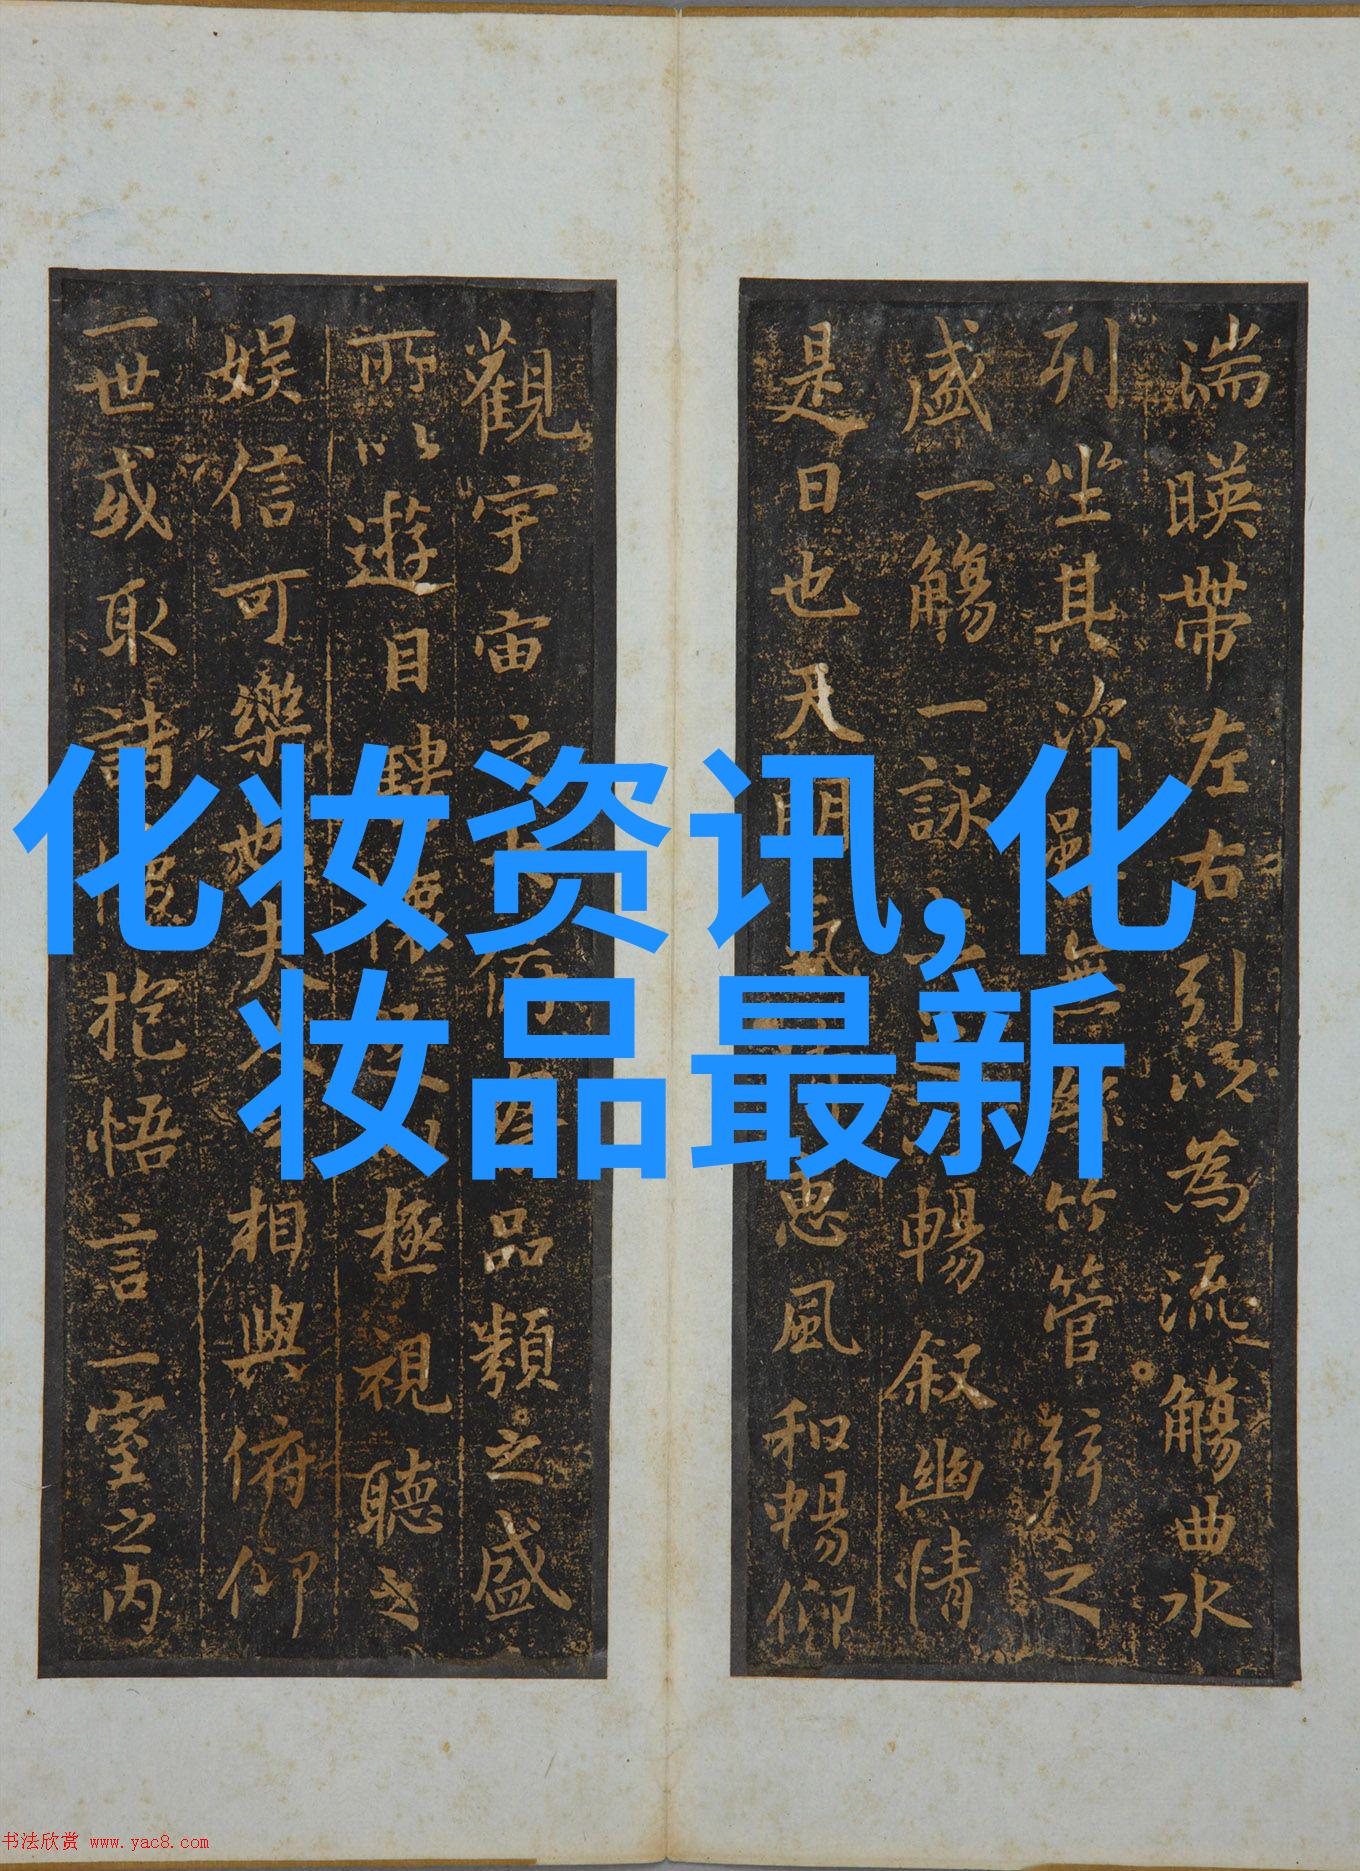 化妆资讯,化
妆品最新
湍暎帶左右引以為流觴曲水
列坐其次雖無絲竹管弦之
盛一觴一詠暢叙幽情
是日也天朗惠風和暢仰
觀宇宙之品類之盛
所以遊目騁懷極視聽之
娛信可樂也夫相與俯仰
一世或取諸懷抱悟言一室之內
书法欣赏 www.yac8.com